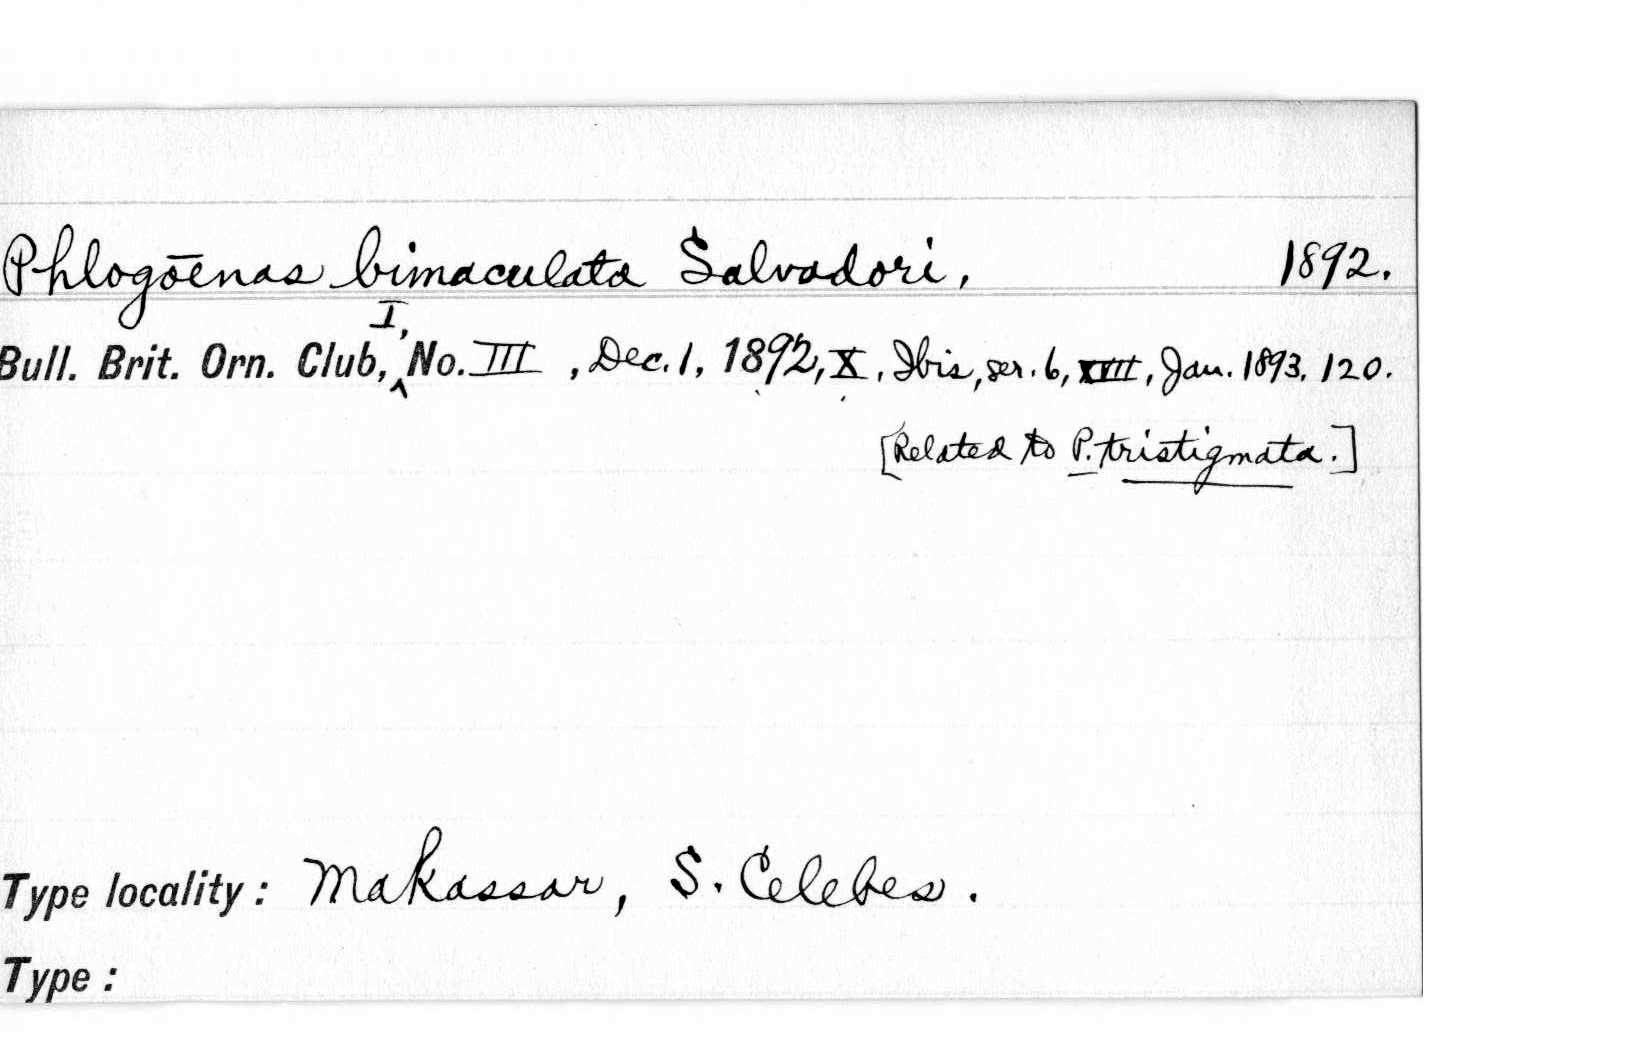 Phlogōenas bimaculata Salvadori, 1892.
Bull. Brit. Orn. Club, I, No. III, Dec. 1, 1892, X, Ibis, ser. 6, XVII, Jan. 1893, 120.
[Related to P. tristigmata.]
Type locality: Makassar, S. Celebes.
Type: